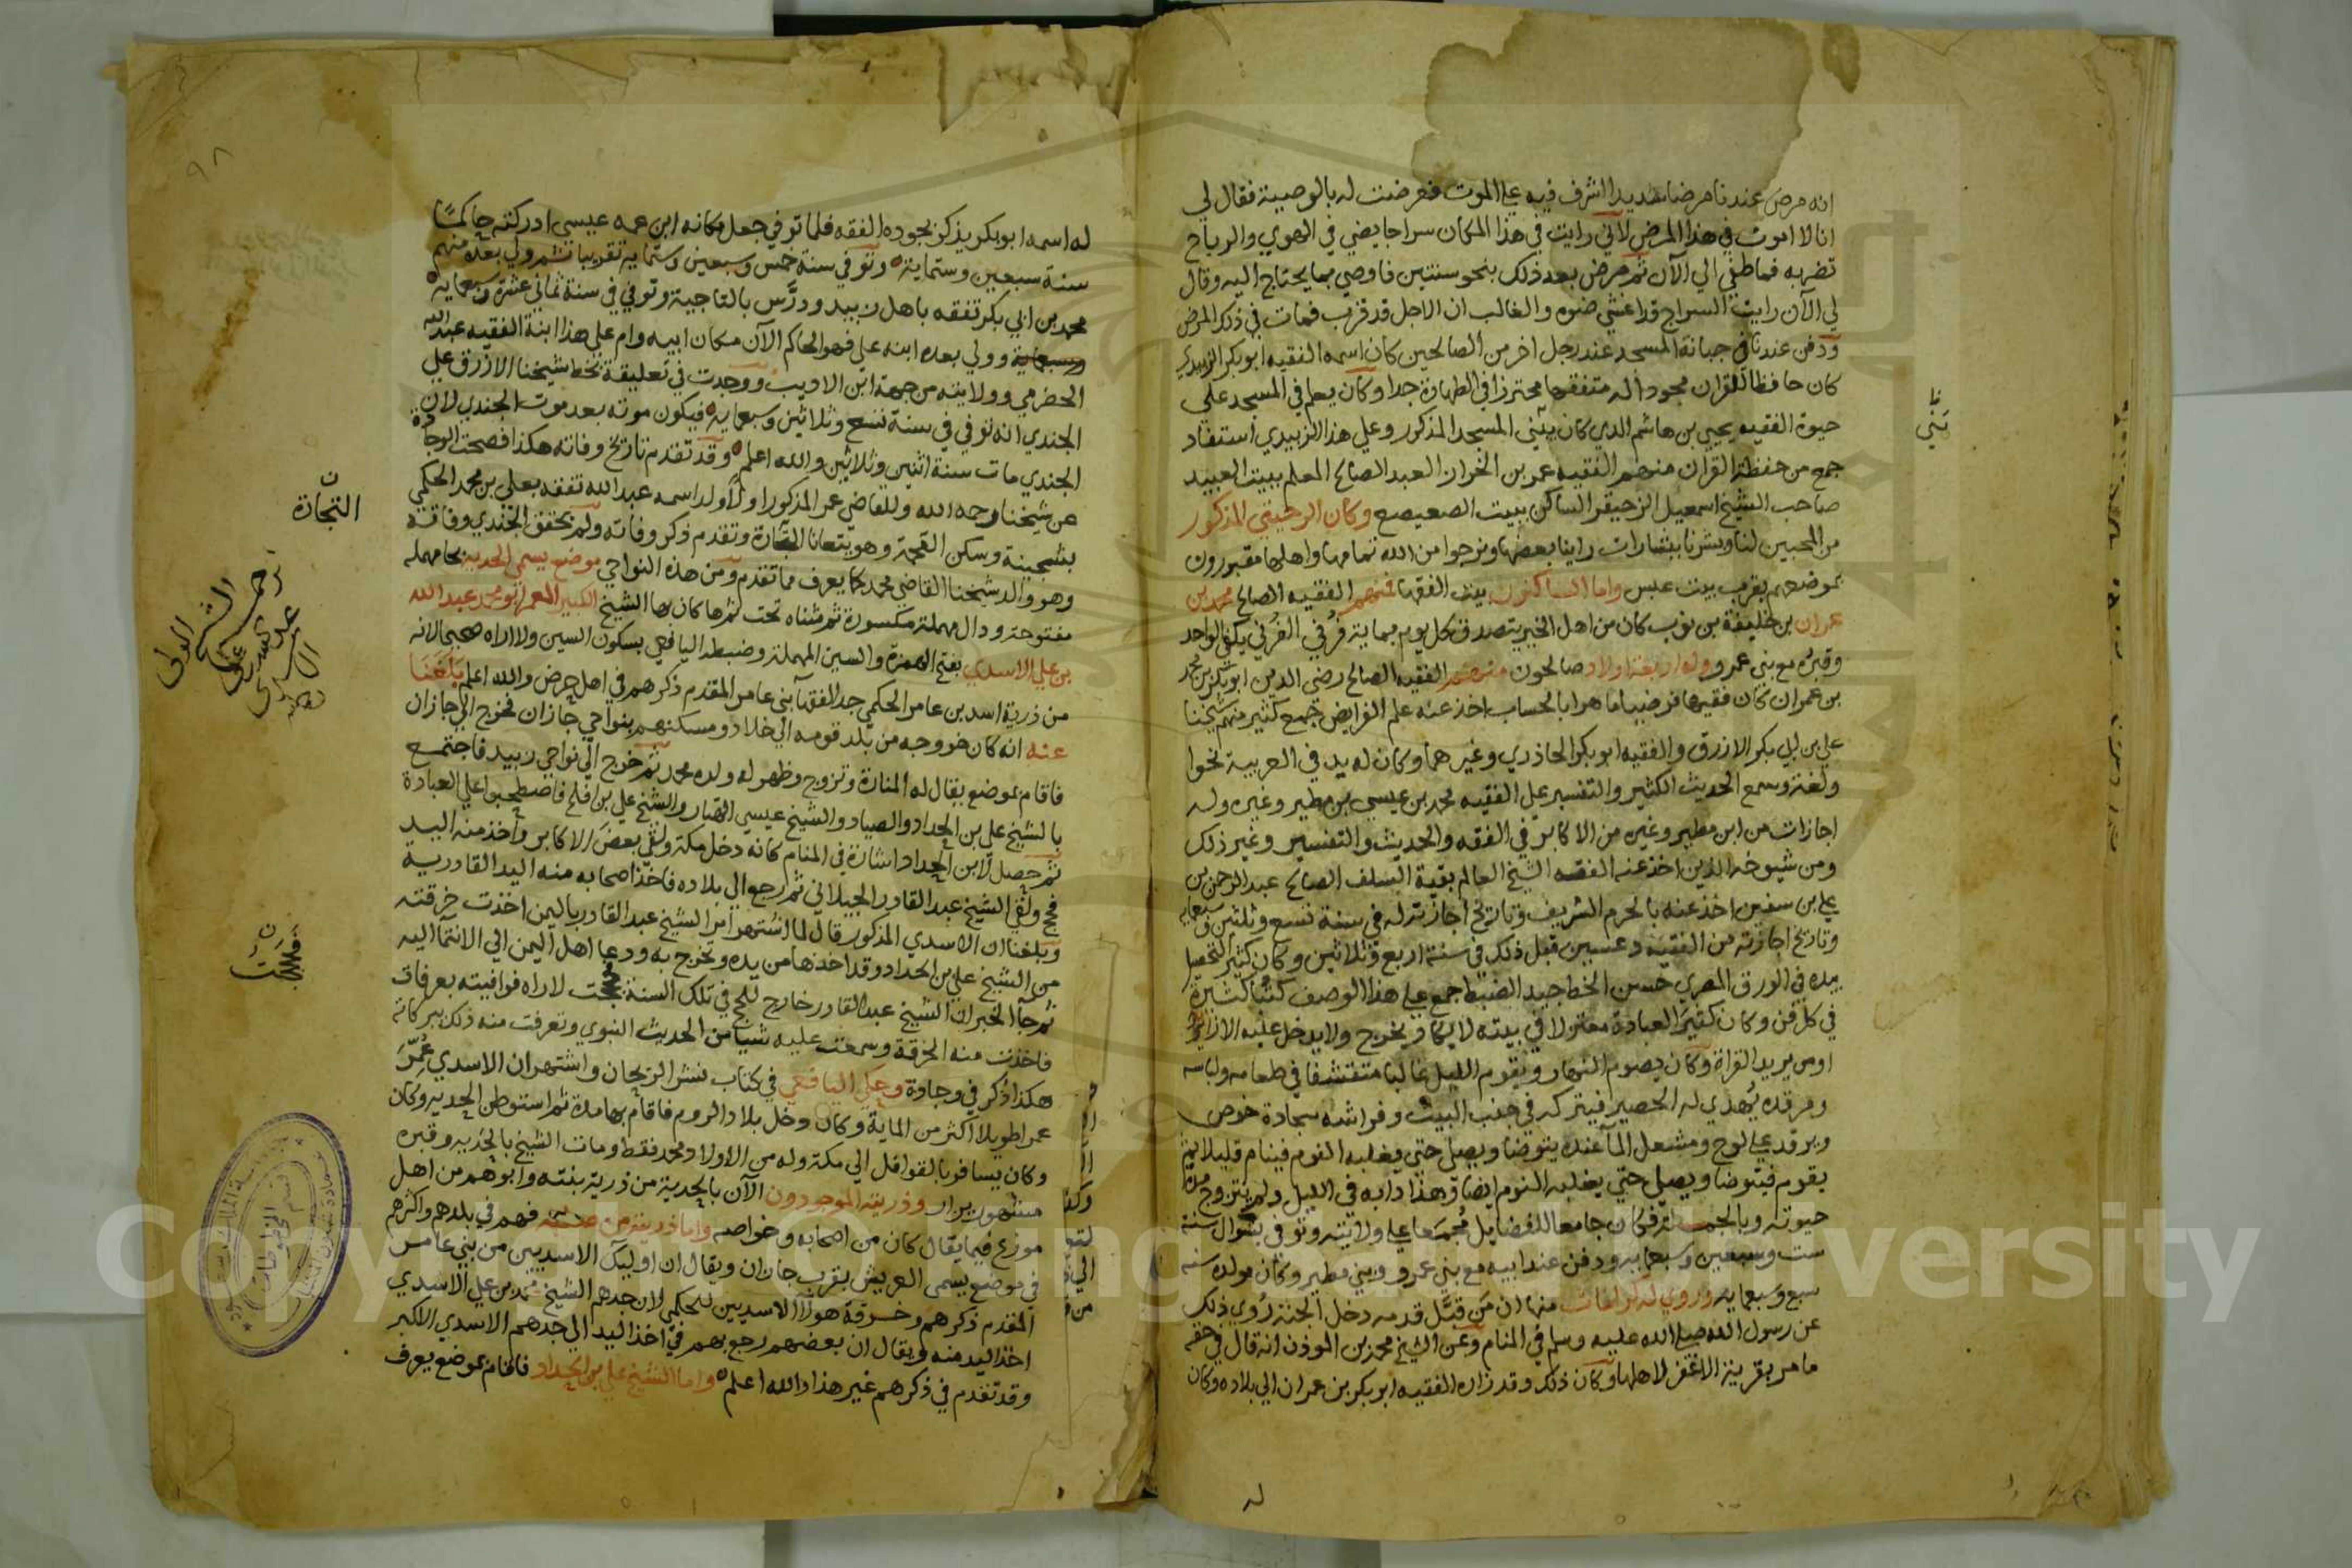 انه مرض عندنا مرضا شديدا اشرف فيه على الموت فعرضت له بالوصية فقال لي
انا لا اموت في هذا المرض لاني رايت في هذا المكان سراجا يضي في الهوي والرياح
تضربه فما طفي الي الآن ثم مرض بعد ذلك بنحو سنتين فاوصي بما يحتاج اليه وقال
لي الآن رايت السراج قد اغشي ضوه والغالب ان الاجل قد قرب فمات في ذلك المرض
ودفن عندنا في جبانة المسجد عند رجل اخر من الصالحين كان اسمه الفقيه ابو بكر الزبيدي
كان حافظا للقران مجودا له متفقها محترزا في الطهارة جدا وكان يعلم في المسجد علي
حيوة الفقيه يحيي بن هاشم الدي كان يبني المسجد المذكور وعلي هذا الزبيدي استفاد
جمع من حفظة القران منهم الفقيه عمر بن الخران العبد الصالح المعلم ببيت العبيد
صاحب الشيخ اسمعيل الزحيقر الساكن ببيت الصعيصع وكان الرحيقي المذكور
من المحبين لنا وبشرنا ببشارات راينا بعضها ونرجوا من الله تمامها واهلها مقبورون
بموضعهم بقرب بيت عبس واما الساكنون بيت الفقها فمنهم الفقيه الصالح محمد بن
عمران بن خليفة بن نوب كان من اهل الخير يتصدق كل يوم بماية قرني القرني يكفي الواحد
وقبره مع بني عمرو وله اربعة اولاد صالحون منهم الفقيه الصالح رضي الدين ابو بكر بن محمد
بن عمران كان فقيها فرضيا ماهرا بالحساب اخذ عنه علم الفرايض جمع كثير منهم شيخنا
علي بن ابي بكر الازرق والفقيه ابو بكر الحاذري وغيرهما وكان له يد في العربية نحوا
ولغة وسمع الحديث الكثير والتفسير علي الفقيه محمد بن عيسي بن مطير وغيره وله
اجازات من ابن مطير وغيره من الاكابر في الفقه والحديث والتفسير وغير ذلك
ومن شيوخه الذين اخذ عنهم الفقه الشيخ العالم بقية السلف الصالح عبد الرحمن بن
علي بن سفين اخذ عنه بالحرم الشريف وتاريخ اجازته له في سنة تسع وثلثين وسبعمايه
وتاريخ اجازته من الفقيه دعسين قبل ذلك في سنة اربع وثلاثين وكان كثير التحصيل
بيده في الورق المصري حسن الخط جيد الضبط جمع علي هذا الوصف كتبا كثيرة
في كل فن وكان كثير العبادة معتزلا في بيته لا يكاد يخرج ولا يدخل عليه الا زاير
او من يريد القراة وكان يصوم النهار ويقوم الليل غالبا متقشفا في طعامه ولباسه
ومرقده يهدي له الحصير فيتركه في جنب البيت وفراشه سجادة خوص
ويرقد علي لوح ومشعل المآ عنده يتوضا ويصلي حتي يغلبه النوم فينام قليلا ثم
يقوم فيتوضا ويصلي حتي يغلبه النوم ايضا وهذا دابه في الليل ولم يتزوج مدة
حيوته وبالجملة فكان جامعا للفضايل مجمعا علي ولايته وتوفي بشوال سنة
ست وسبعين وسبعمايه ودفن عند ابيه مع بني عمرو وبني مطير وكان مولده سنه
سبع وسبعمايه وروي له كرامات منها ان من قبل قدمه دخل الجنة روي ذلك
عن رسول الله صلي الله عليه وسلم في المنام وعن الشيخ محمد بن الموذن انه قال في حقه
ما مر بقرية الا غفر لاهلها وكان ذلك وقد زاره الفقيه ابو بكر بن عمران الي بلاده وكان
يبني
له اسمه ابو بكر يذكر بجوده الفقه فلما توفي جعل مكانه ابن عمه عيسي ادركته حاكما
سنة سبعين وستماية وتوفي سنة خمس وسبعين وستماية تقريبا ثم ولي بعده منهم
محمد بن ابي بكر تفقه باهل زبيد ودرس بالتاجية وتوفي في سنة ثماني عشرة وسبعمايه
وسبعماية وولي بعده ابنه علي فهو الحاكم الآن مكان ابيه وام علي هذا ابنة الفقيه عبد الله
الحضرمي وولايته من جهة ابن الاديب ووجدت في تعليقة بخط شيخنا الازرق علي
الجندي انه توفي في سنة تسع وثلاثين وسبعمايه فيكون موته بعد موت الجندي لان
الجندي مات سنة اثنين وثلاثين والله اعلم وقد تقدم تاريخ وفاته هكذا فصحت الوجادة
عن شيخنا رحمه الله وللقاضي عمر المذكور اولا ولد اسمه عبد الله تفقه بعلي بن محمد الحكمي
بشجينة وسكن القحمة وهو يتعانا التجارة وتقدم ذكر وفاته ولم يحقق الجندي وفاته
وهو والد شيخنا القاضي محمد كما يعرف مما تقدم ومن هذه النواحي موضع يسمي الحديه بحا مهمله
مفتوحة ودال مهملة مكسورة ثم مثناه تحت ثم ها كان بها الشيخ الكبير المعمر ابو محمد عبد الله
بن علي الاسدي بفتح الهمزة والسين المهملة وضبطه اليافعي بسكون السين ولا اراه صحيحا لانه
من ذرية اسد بن عامر الحكمي جد الفقهآ بني عامر المقدم ذكرهم في اهل حرض والله اعلم بلغنا
عنه انه كان خروجه من بلد قومه الي خلاد ومسكنهم بنواحي جازان فخرج الي جازان
فاقام بموضع يقال له المنارة وتزوج وظهر له ولده محمد ثم خرج الي نواحي زبيد فاجتمع
بالشيخ علي بن الحداد والصياد والشيخ عيسي الهتار والشيخ علي بن افلح فاصطحبوا علي العبادة
ثم حصل لابن الحداد اشارة في المنام كانه دخل مكة ولقي بعض الاكابر واخذ منه اليد
فحج ولقي الشيخ عبد القادر الجيلاني ثم رجع الي بلاده فاخذ اصحابه منه اليد القادرية
وبلغنا ان الاسدي المذكور قال لما اشتهر امر الشيخ عبد القادر باليمن اخذت خرقته
من الشيخ علي بن الحداد وقد اخذها من يده وتخرج به ودعا اهل اليمن الي الانتمآ اليه
ثم جآ الخبر ان الشيخ عبد القادر خارج للحج في تلك السنة فحججت لاراه فوافيته بعرفات
فاخذت منه الخرقة وسمعت عليه شيا من الحديث النبوي وتعرفت منه ذلك ببركاته
هكذا ذكر في وجادة وحكي اليافعي في كتاب نشر الريحان واشتهر ان الاسدي عمر
عمرا طويلا اكثر من الماية وكان دخل بلاد الروم فاقام بها مدة ثم استوطن الحديه وكان
وكان يسافر بالقوافل الي مكة وله من الاولاد محمد فقط ومات الشيخ بالحديه وقبره
مشهور يزار وذريته الموجودون الآن بالحدية من ذرية بنته وابوهم من اهل
موزع فيما يقال كان من اصحابه وخواصه واما ذريته من فهم في بلدهم واكثرهم
في موضع يسمى العريش بقرب جازان ويقال ان اوليك الاسديين من بني عامر
المقدم ذكرهم وخرقة هولآ الاسديين للحكمي لان جدهم الشيخ محمد بن علي الاسدي
اخذ اليد منه ويقال ان بعضهم رجع بهم في اخذ اليد الي جدهم الاسدي الاكبر
وقد تقدم في ذكرهم غير هذا والله اعلم واما الشيخ علي بن الحداد فاقام بموضع يعرف
التجارة
ترجمة
الشيخ الولي
فحججت
٩٨
Copyright © King Saud University